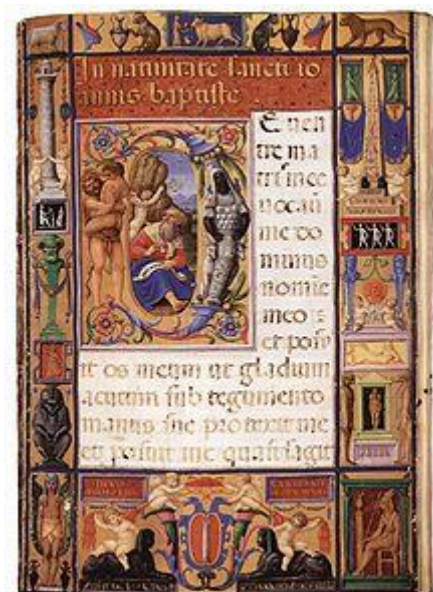 In natiuitate sancti io
annis baptiste
E uen
tre ma
tris mee
uocauit
me do
minus
nomie
meo :
et posu
it os meum ut gladium
acutum sub tegumento
manus sue protexit me
et posuit me quasi sagit